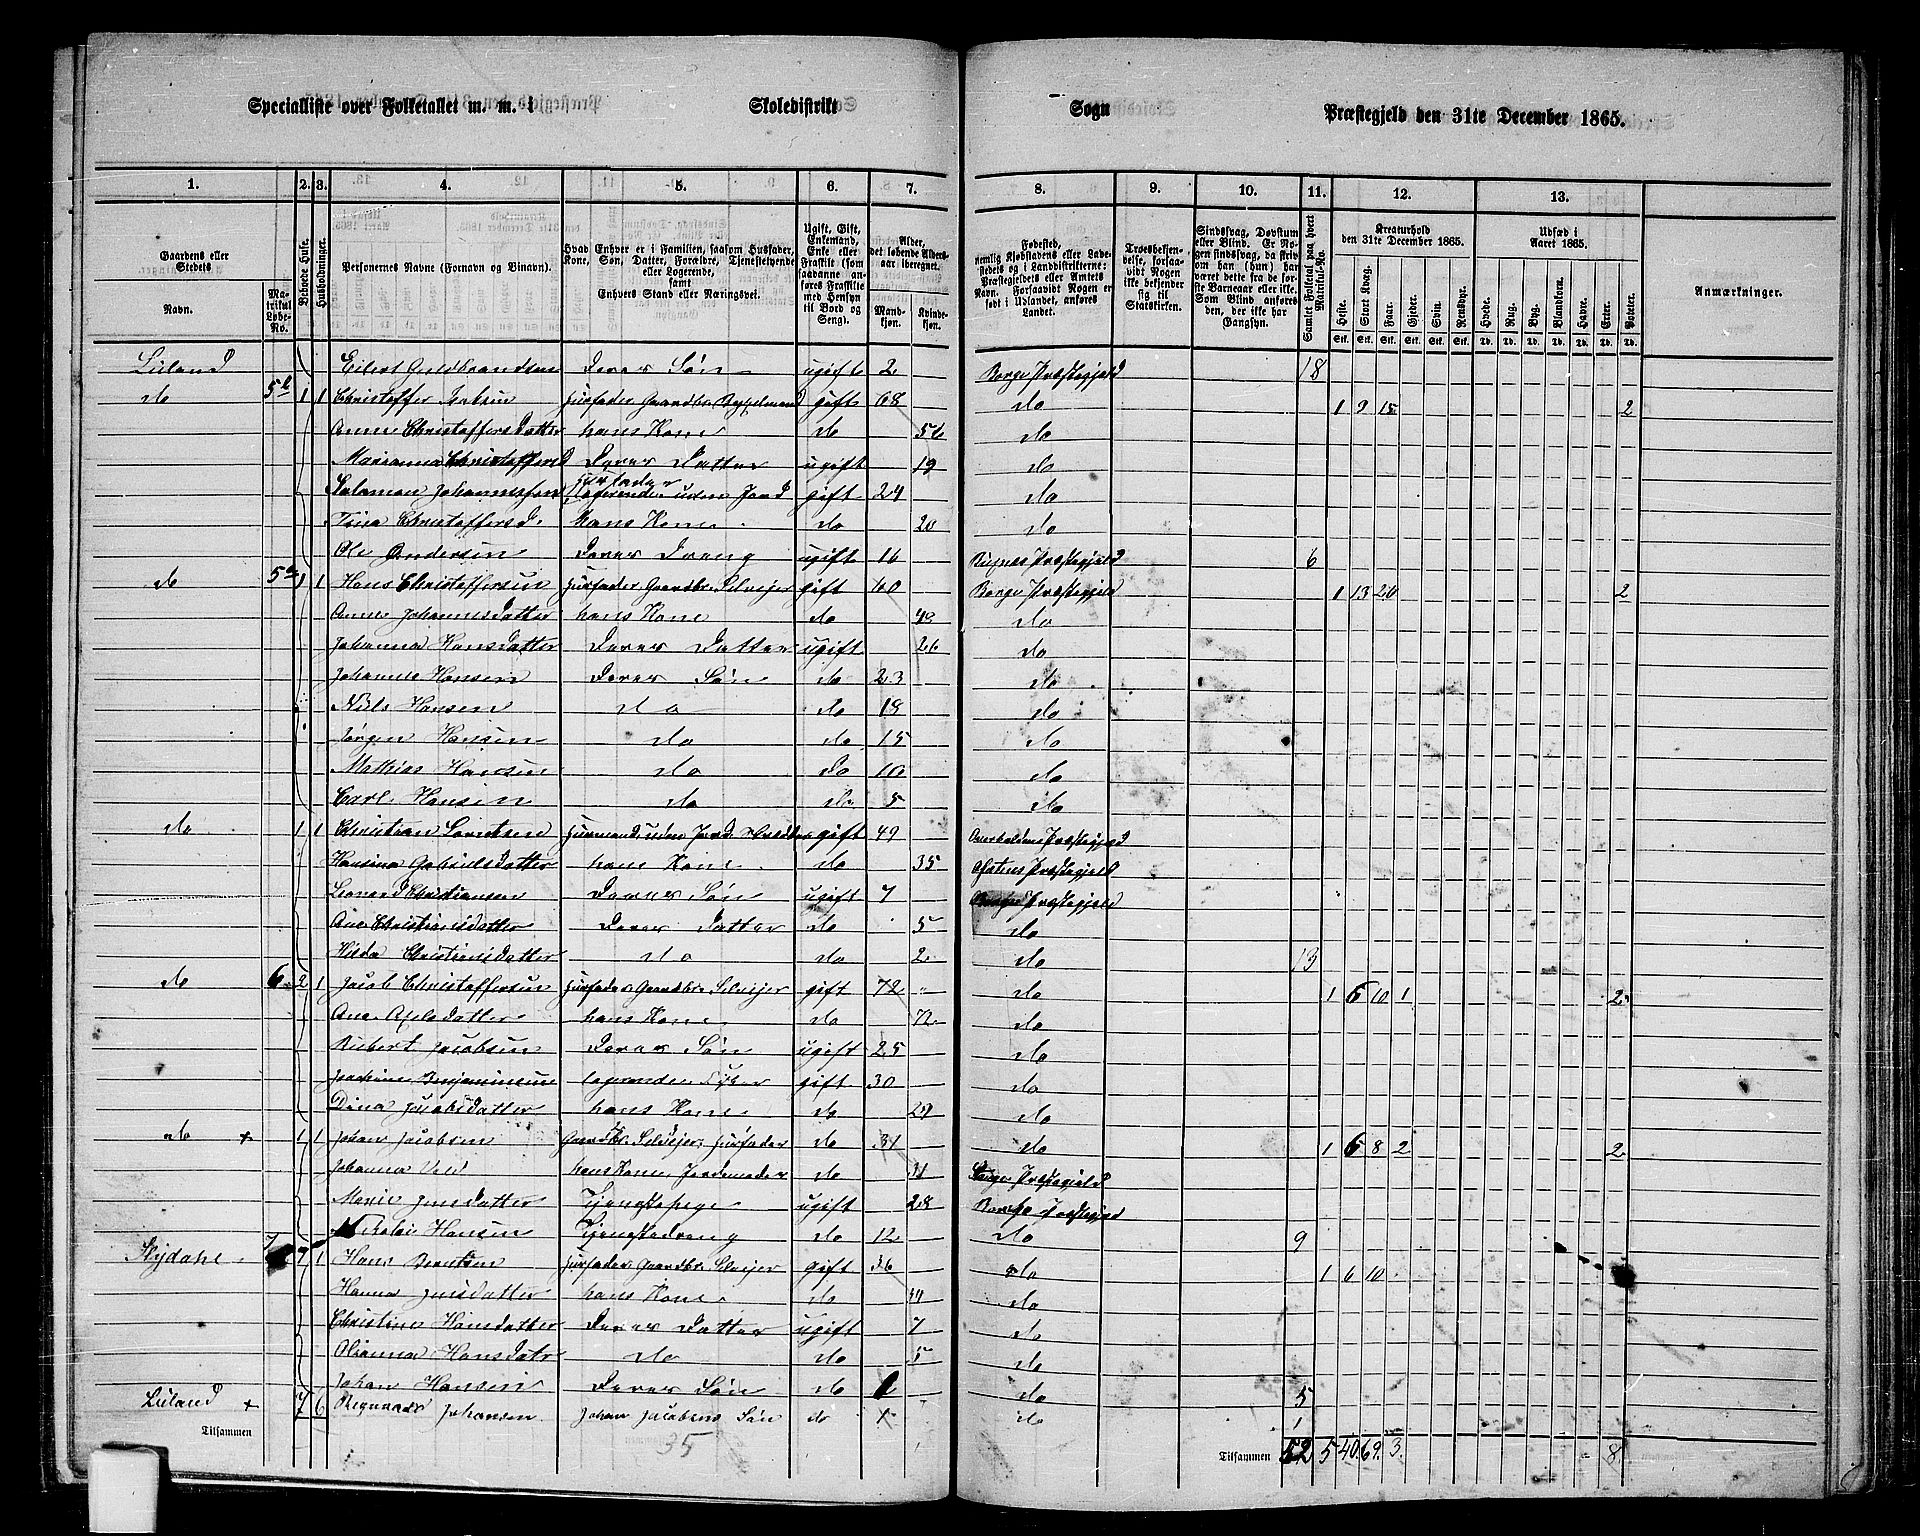 Specialliste over Folketallet m. m. i Skoledistrikt Sogn Præstegjeld den 31te December 1865.
1. 2. 3. 4. 5. 6. 7. 8. 9. 10. 11. 12. 13.
Gaardens eller Stedets Navn. Matrikul Løbe-No. Beboede Huse. Husholdninger. Personernes Navne (Fornavn og Tilnavn). Hvad Enhver er i Familien, saasom Husfader, Kone, Søn, Datter, Forældre, Tjenestetyende eller Logerende, samt Enhvers Stand eller Næringsvei. Ugift, Gift, Enkemand, Enke eller Fraskilt (som saadanne anføres Fraskilte med Hensyn til Bord og Seng). Alder, det løbende Aldersaar iberegnet. Mandkjøn. Kvindekjøn. Fødested, nemlig Kjøbstadens eller Ladestedets og i Landdistrikterne: Præstegjeldets eller Amtets Navn. Forsaavidt Nogen er født i Udlandet, anføres Landet. Troesbekjendelse, forsaavidt Nogen ikke bekjender sig til Statskirken. Samlet Folketal paa hvert Matrikul-No. Kreaturhold den 31te December 1865. Heste. Stort Kvæg. Faar. Gjeder. Svin. Rensdyr. Udsæd i Aaret 1865. Hvede. Rug. Byg. Blandkorn. Havre. Erter. Poteter. Anmærkninger.
Liland Eilert Guldbrandsen Deres Søn ugift 2 Borge Præstegjeld 18
do 5b 1 1 Christoffer Husfader Gaardbr. gift 68 do 1 9 15 2
Anne Christoffersdatter hans Kone do 56 do
Marianna Christoffersd Deres Datter ugift 19 do
Salamon Johannessen Husfader Logerende uden Jord gift 24 do
Tina Christoffersd. hans Kone do 20 do
Ole Andersen Deres Dreng ugift 16 Præstegjeld 6
do 5a 1 1 Hans Christoffersen Husfader Gaardbr. Selveier gift 40 Borge Præstegjeld 1 13 20 2
Anne Johannesdatter hans Kone do 49 do
Johanna Hansdatter Deres Datter ugift 26 do
Johannes Hansen Deres Søn do 23 do
Niels Hansen do do 18 do
Jørgen Hansen do do 15 do
Mathias Hansen do do 10 do
Carl Hansen do do 5 do
do 1 1 Christian Husmand uden Jord gift 49 Præstegjeld
Hansina Gabrielsdatter hans Kone do 35 Præstegjeld
Leonard Christiansen Deres Søn ugift 7 Borge Præstegjeld
Ane Christiansdatter Deres Datter do 5 do
Hilda Christiansdatter do do 2 do 13
do 6 2 1 Jacob Christoffersen Husfader Gaardbr. Selveier gift 72 do 1 6 10 1 2
Ane Axelsdatter hans Kone do 72 do
Rikert Jacobsen Deres Søn ugift 25 do
Joachim Benjaminsen logerende Fisker gift 30 do
Dina Jacobsdatter hans Kone do 29 do
do + 1 1 Johan Jacobsen Gaardbr. Selveier, Husfader do 31 do 1 6 8 2 2
Johanna hans Kone, Jordemoder do 31 Præstegjeld
Marie Jensdatter Tjenestepige ugift 28 Borge Præstegjeld
Nikolai Hansen Tjenestedreng do 12 do 9
7 1 Hans Berntsen Husfader Gaardbr. Selveier gift 36 do 1 6 10
Hanna Jensdatter hans Kone do do
Christine Hansdatter Deres Datter ugift 7 do
Olianna Hansdatr do do 5 do
Johan Hansen Deres Søn do do 5
Liland + 7 6 Johansen Johan Jacobsens Søn do + do 1
Tilsammen 35 Tilsammen 52 5 40 69 3 8